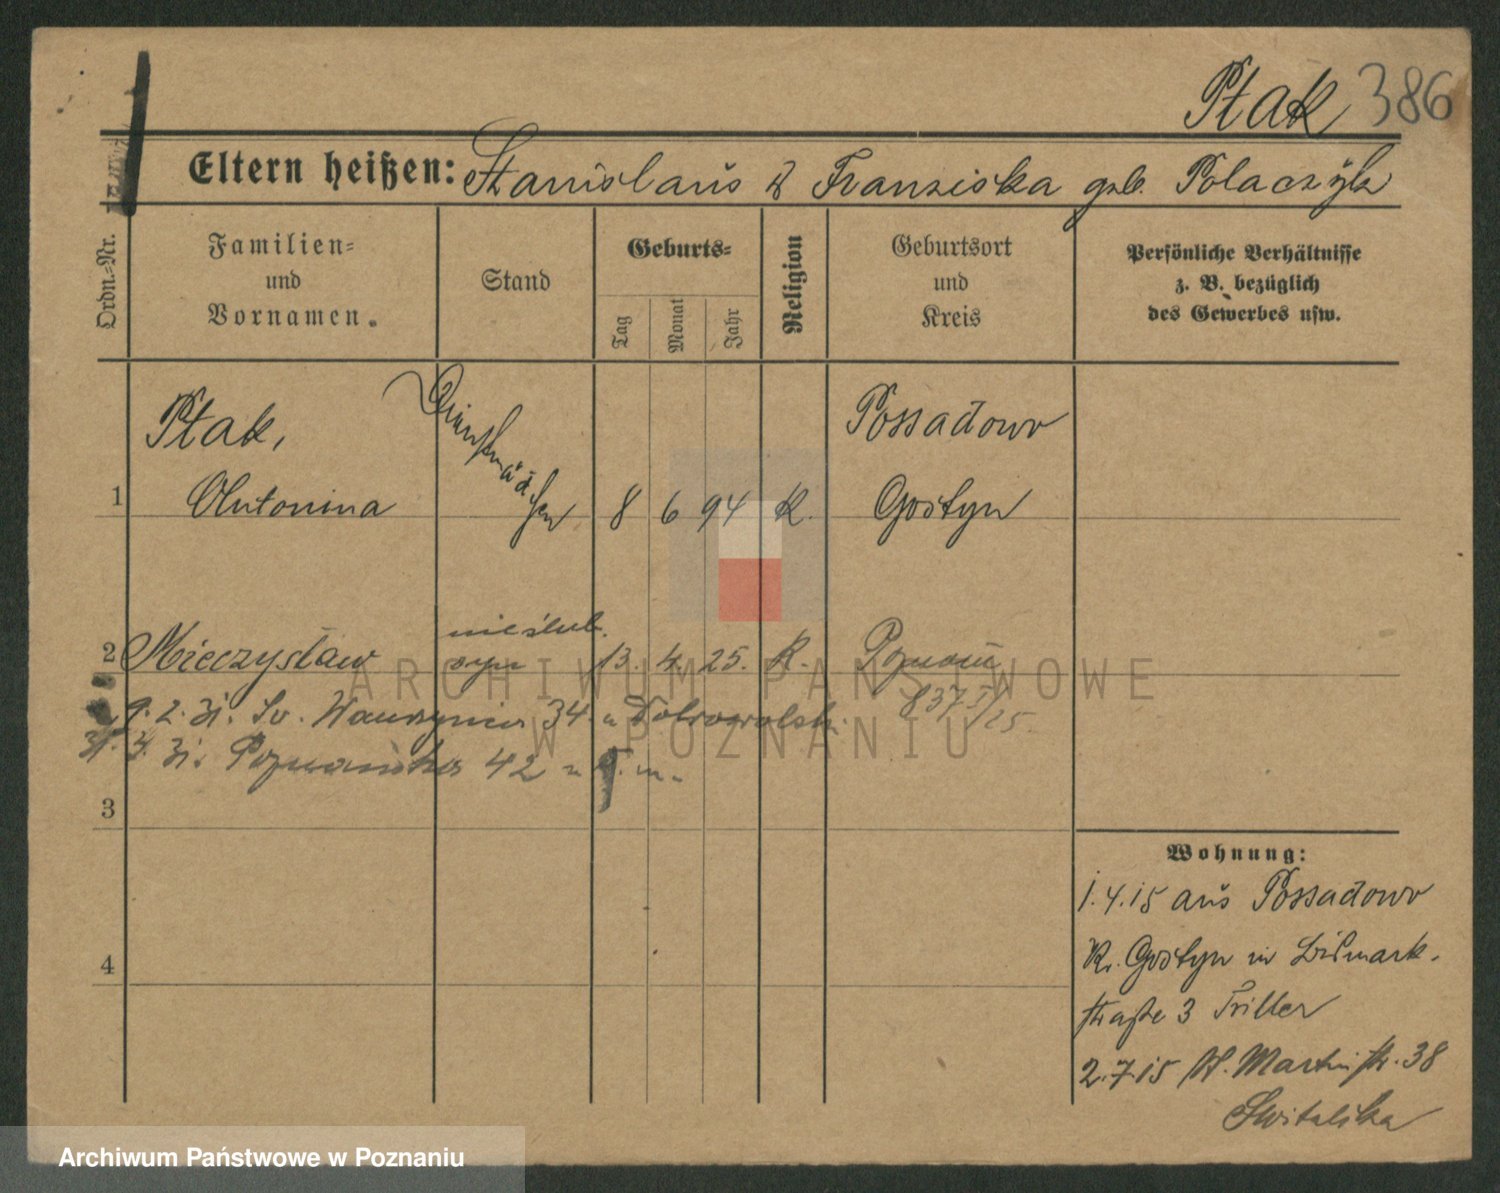 Ptak 386
Eltern heißen: Stanislaus & Franziska geb. Polaczyk
Ordn.-Nr.
Familien-
und
Vornamen.
Stand
Geburts-
Tag
Monat
Jahr
Religion
Geburtsort
und
Kreis
Persönliche Verhältnisse
z. B. bezüglich
des Gewerbes usw.
1
Ptak,
Antonina
Dienstmädchen
8 6 94 K.
Possadowo
Gostyn
2 Mieczysław nieślub. syn 13. 4. 25. K. Poznań
837 25.
9. 2. Św. Wawrzyniec 34 u Dobrowolsk.
Poznańska 42
3
4
Wohnung:
1.4.15 aus Possadowo
Kr. Gostyn in Bismark-
straße 3 Triller
2.7.15 St. Martinstr. 38
Switalska
ARCHIWUM PAŃSTWOWE
W POZNANIU
Archiwum Państwowe w Poznaniu